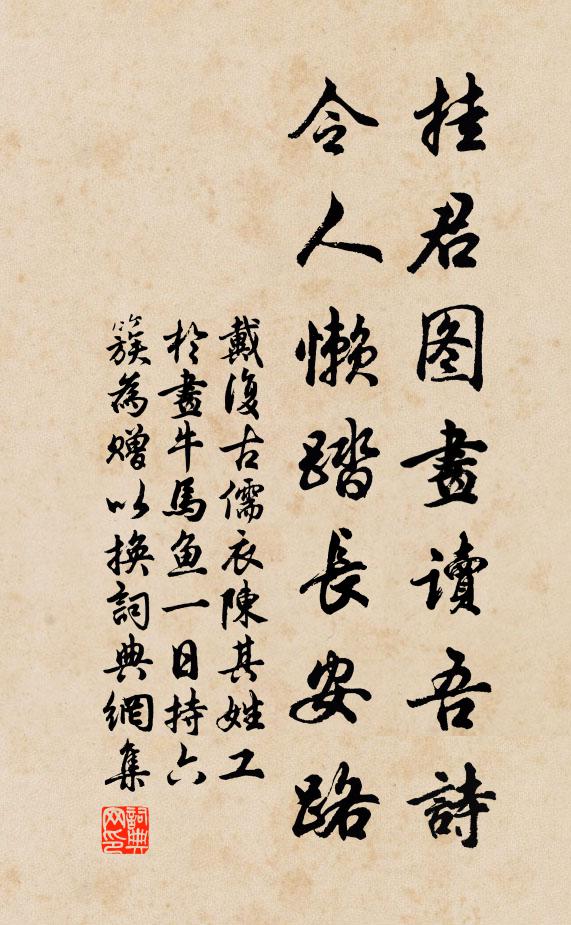 挂君图畫讀吾詩
令人懶踏長安路
戴復古儒衣陳其姓工
於畫牛馬魚一日持六
簇為贈以换詞典網集
詞典网印